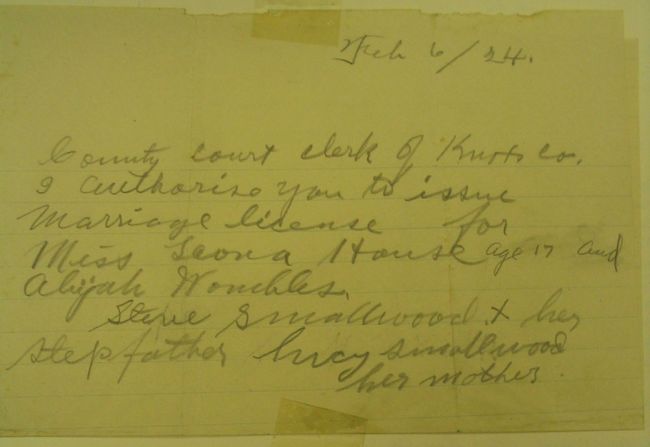 Feb 6/24.
County court clerk of Knox co.
I authorise you to issue
Marriage license for
Miss Leona House age 17 and
Abijah Wombles.
Steve Smallwood + her
stepfather Lucy Smallwood
her mother